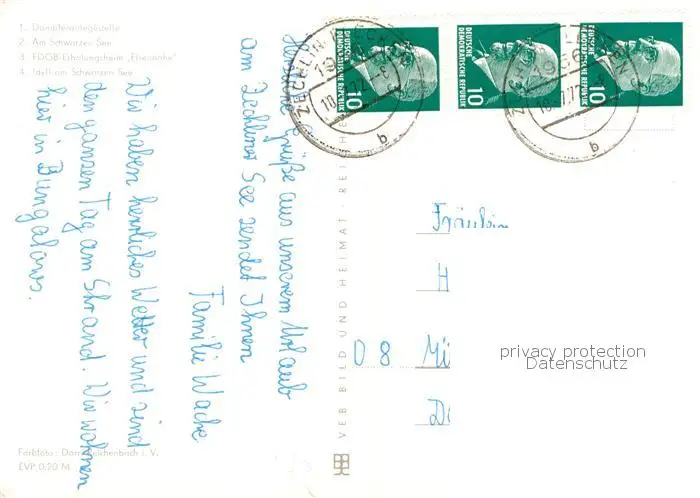 1. Dampferanlegestelle
2. Am Schwarzen See
3. FDGB-Erholungsheim „Elsenhöhe"
4. Idyll am Schwarzen See
Grüße aus unserem Urlaub
am Zechliner See sendet Ihnen
Familie Wache
Wir haben herrliches Wetter und sind
den ganzen Tag am Strand. Wir wohnen
hier in Bungalows.
Farbfoto: Darr, Reichenbach i. V.
EVP 0,20 M
VEB BILD UND HEIMAT · REICHE
DEUTSCHE
DEMOKRATISCHE REPUBLIK
10
DEUTSCHE
DEMOKRATISCHE REPUBLIK
10
DEUTSCHE
DEMOKRATISCHE REPUBLIK
10
ZECHLIN
b
b
Fräulein
H
08 Mü
privacy protection
Datenschutz